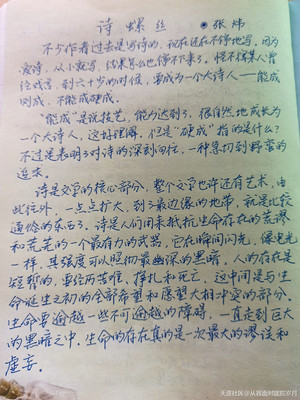 诗螺丝 ● 张炜
不少作者过去是写诗的，现在还在不停地写。因为
爱诗，从小就写，结果怎么也停不下来了。怪不得某人曾
经戏言，到六十岁的时候，要成为一个大诗人——能成
则成，不能成硬成。
“能成”是说技艺，能力达到了，很自然地成长为
一个大诗人，这好理解，但是“硬成”指的是什么？
不过是表明了对诗的深刻向往，一种急切到野蛮的
追求。
诗是文学的核心部分，整个文学也许还有艺术，由
此往外，一点点扩大，到了最边缘的地带，就是比较
通俗的东西了。诗是人们用来抵抗生命存在的荒谬
和荒芜的一个最有力的武器，它在瞬间闪光，像电光
一样，其强度可以照彻最幽深的黑暗，人的存在是
短暂的，要经历苦难，挣扎和死亡，这中间是与生
命诞生之初的全部希望和愿望大相冲突的部分。
生命要逾越一些不可逾越的障碍，一直走到巨大
的黑暗之中，生命的存在真的是一次最大的谬误和
虚妄。
天涯社区@从容面对庭院岁月